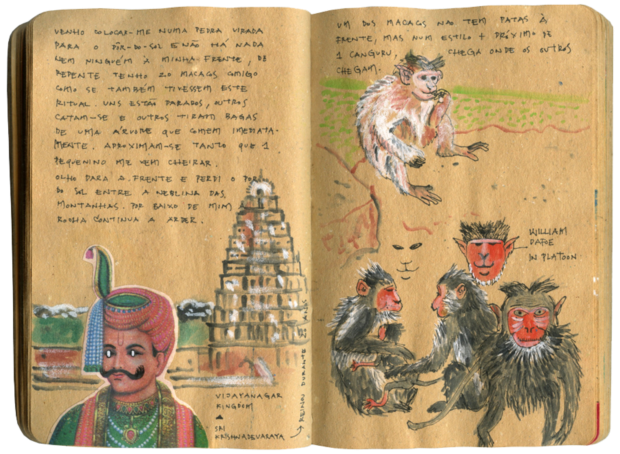 VENHO COLOCAR-ME NUMA PEDRA VIRADA
PARA O PÔR-DO-SOL E NÃO HÁ NADA
NEM NINGUÉM À MINHA FRENTE, DE
REPENTE TENHO 20 MACACOS COMIGO
COMO SE TAMBÉM TIVESSEM ESTE
RITUAL. UNS ESTÃO PARADOS, OUTROS
CATAM-SE E OUTROS TIRAM BAGAS
DE UMA ÁRVORE QUE COMEM IMEDIATA-
MENTE. APROXIMAM-SE TANTO QUE 1
PEQUENINO ME VEM CHEIRAR.
OLHO PARA A FRENTE E PERDI O PÔR
DO SOL ENTRE A NEBLINA DAS
MONTANHAS. POR BAIXO DE MIM
ROCHA CONTINUA A ARDER.
VIJAYANAGAR
KINGDOM
SRI
KRISHNADEVARAYA
REINOU DURANTE
UM DOS MACACOS NÃO TEM PATAS À
FRENTE, MAS NUM ESTILO + PRÓXIMO DE
1 CANGURU, CHEGA ONDE OS OUTROS
CHEGAM.
WILLIAM
DAFOE
IN PLATOON